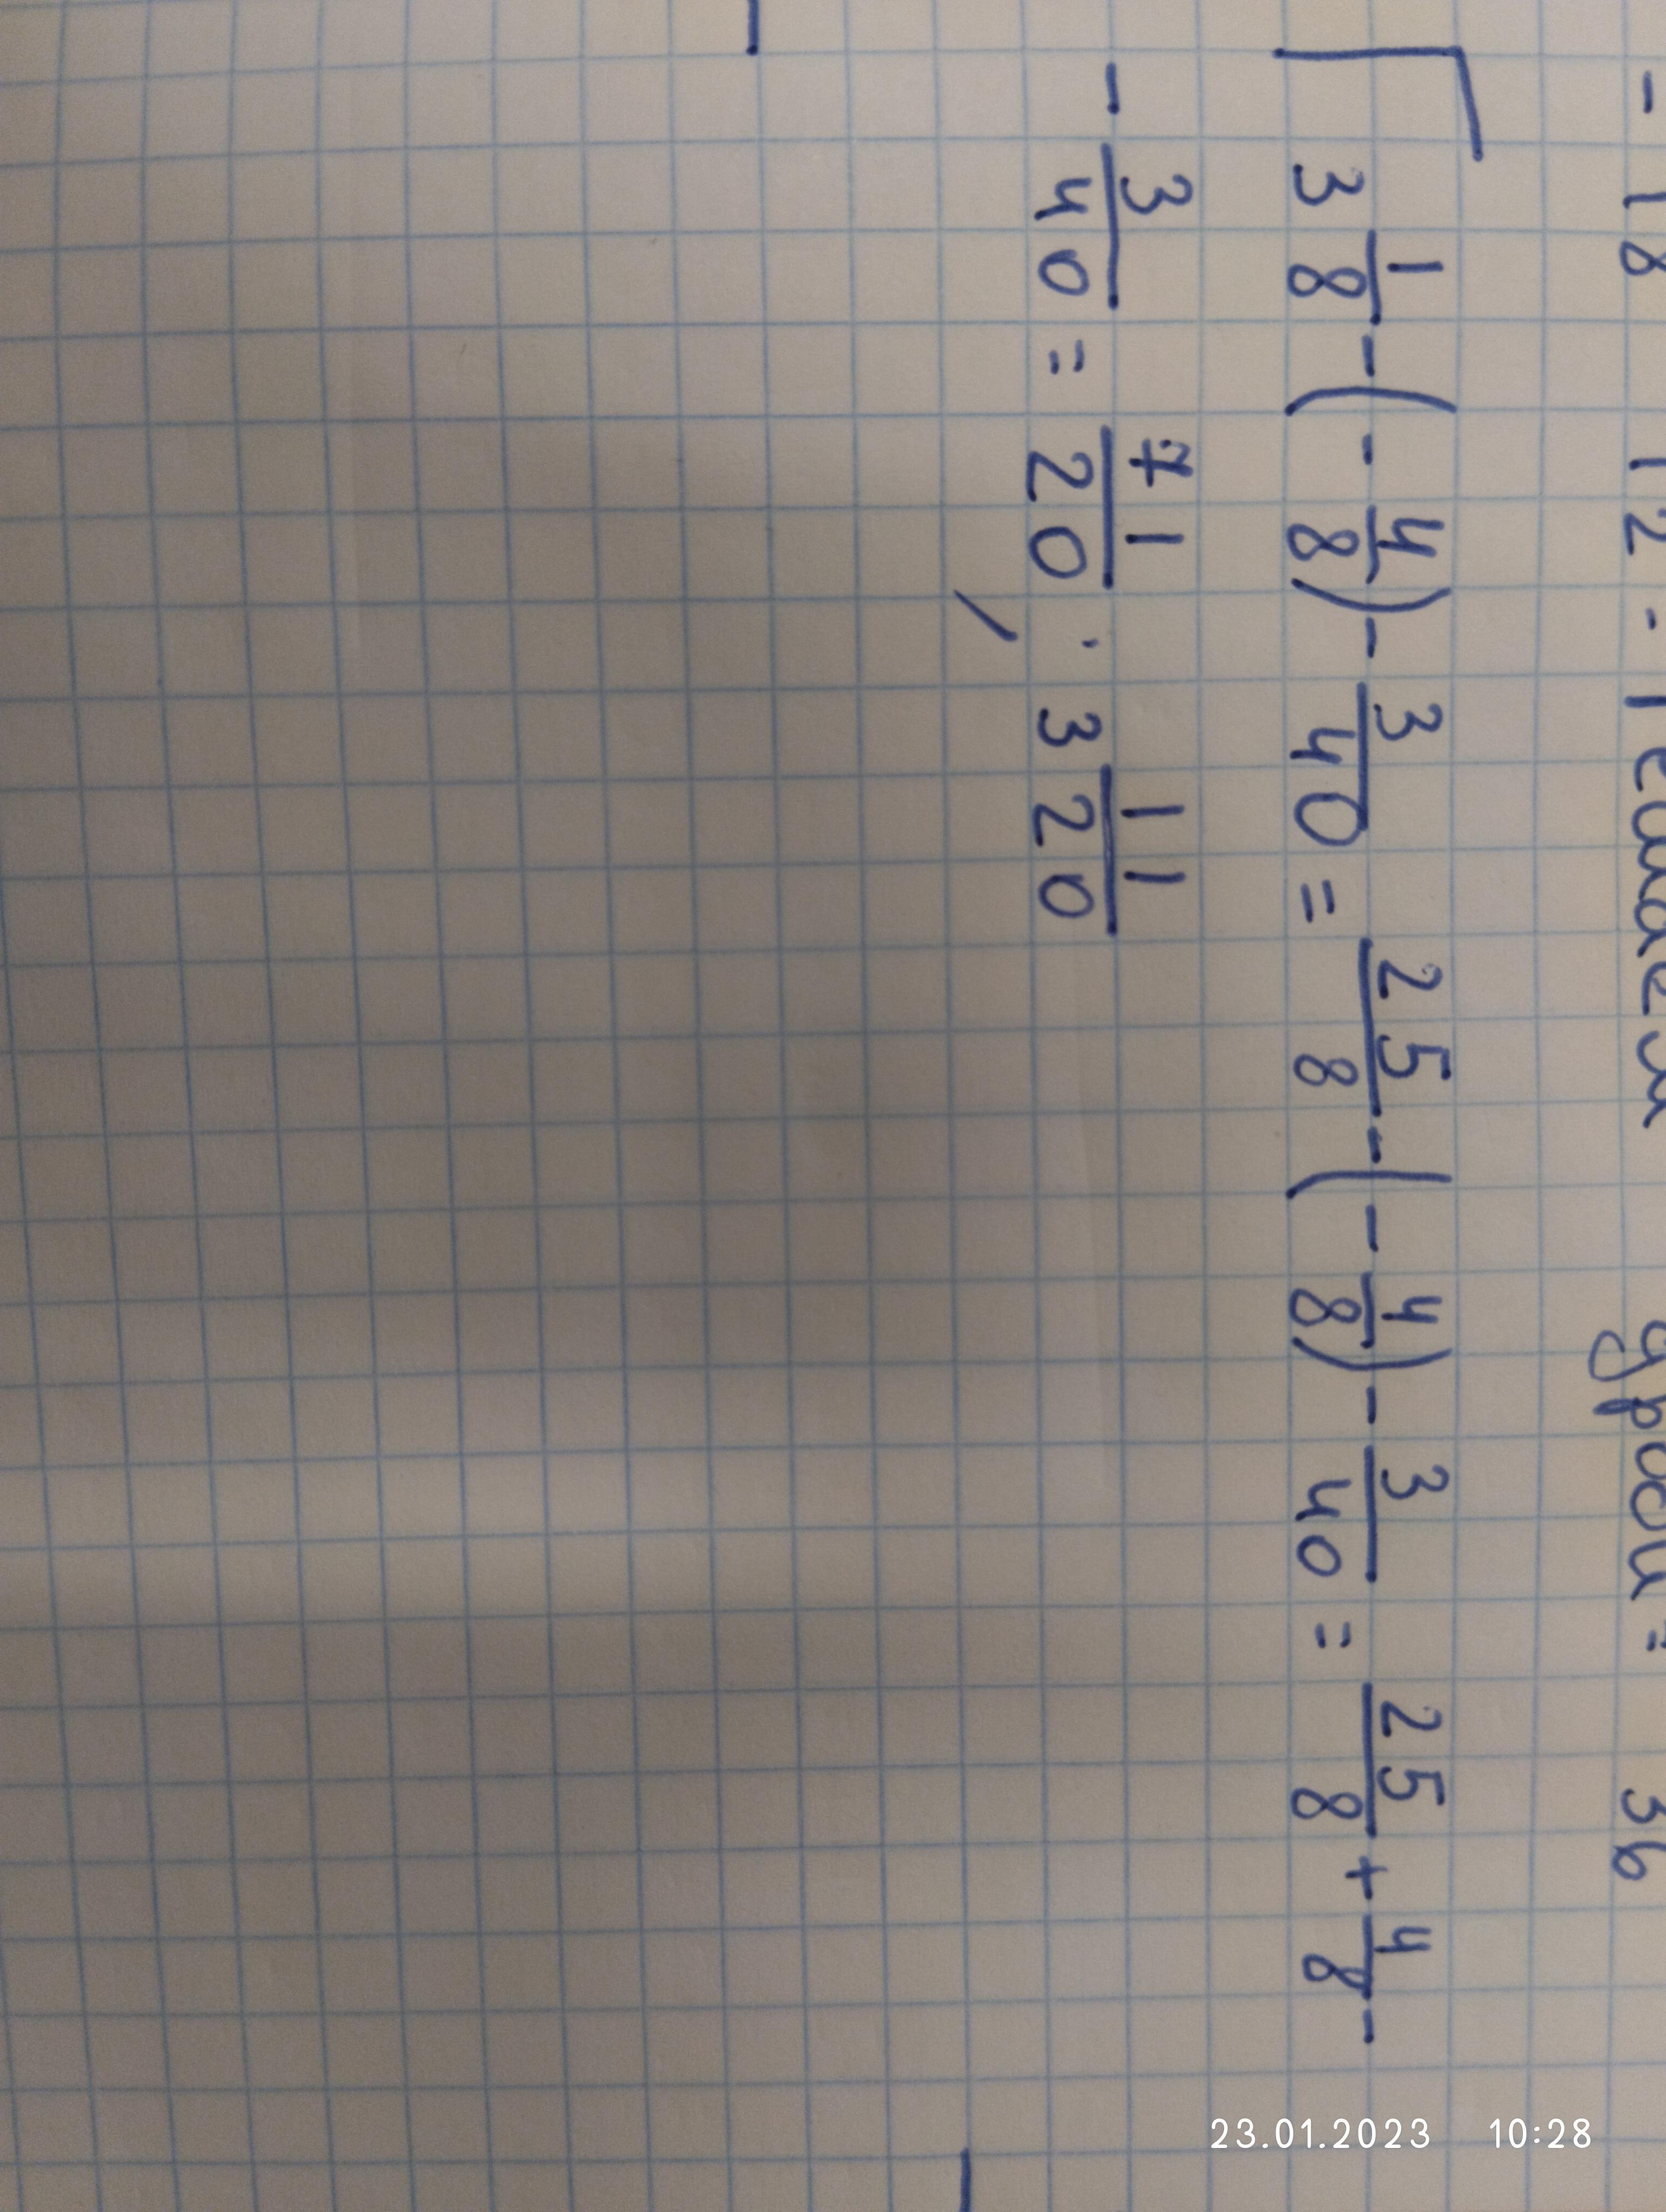 3 1/8 - (- 4/8) - 3/40 = 25/8 - (- 4/8) - 3/40 = 25/8 + 4/8 -
- 3/40 = 71/20; 3 11/20
23.01.2023 10:28